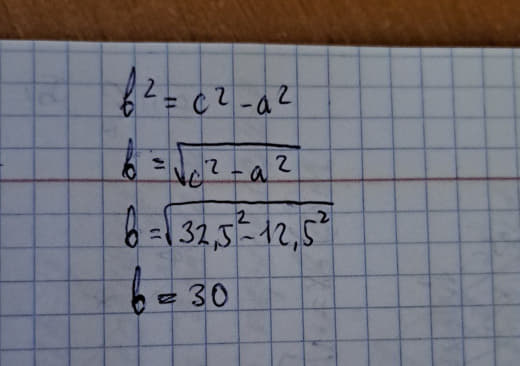 b² = c² - a²
b = √c² - a²
b = √32,5² - 12,5²
b = 30